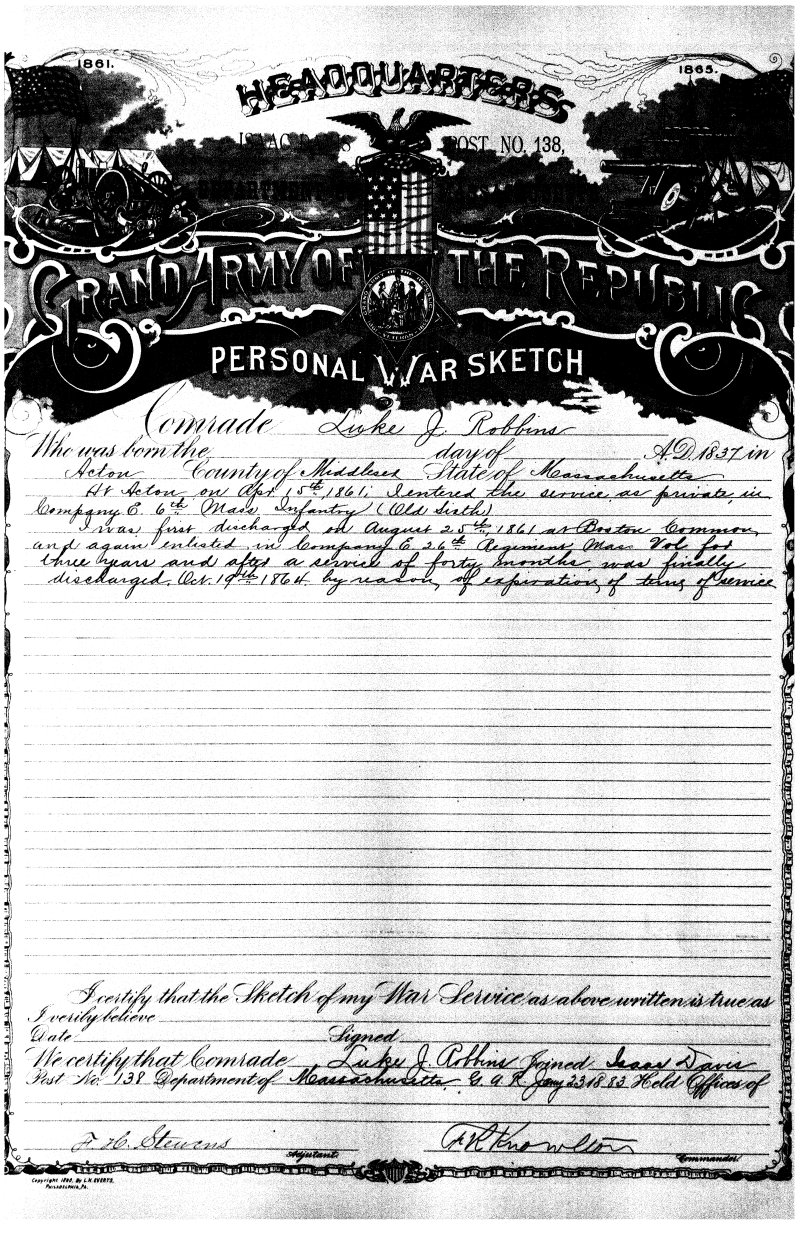 1861.
1865.
HEADQUARTERS
ISAAC DAVIS POST NO. 138,
DEPARTMENT
GRAND ARMY OF THE REPUBLIC
PERSONAL WAR SKETCH
Comrade Luke J. Robbins
Who was born the day of A.D. 1837 in
Acton County of Middlesex State of Massachusetts
At Acton on Apr. 15th 1861, I entered the service as private in
Company E. 6th Mass. Infantry (Old Sixth)
I was first discharged on August 25th, 1861 at Boston Common,
and again enlisted in Company E. 26th Regiment Mass Vol. for
three years and after a service of forty months was finally
discharged, Oct. 19th 1864 by reason of expiration of term of service
I certify that the Sketch of my War Service as above written is true as
I verily believe
Date Signed
We certify that Comrade Luke J. Robbins Joined Isaac Davis
Post No. 138 Department of Massachusetts G. A. R. Jany 23 1883 Held Offices of
F H Stevens
Adjutant.
Knowlton
Commander.
Copyright 1890, By L.H. EVERTS,
PHILADELPHIA, PA.